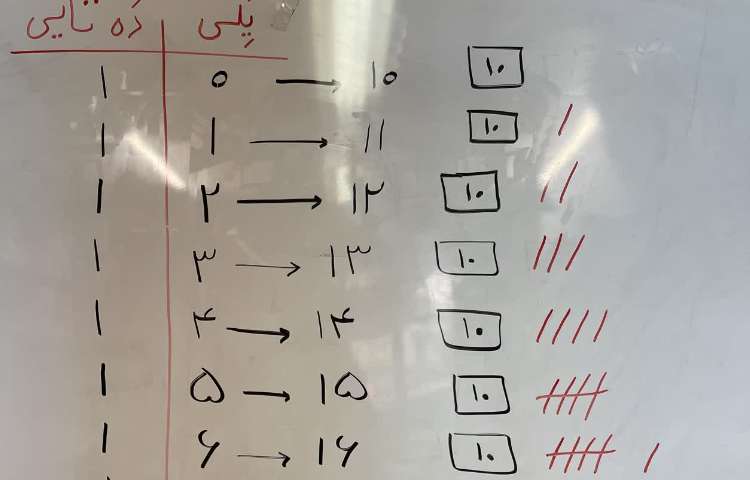 یِکی دَه تایی
۱ ۰ → ۱۰ ۱۰
۱ ۱ → ۱۱ ۱۰ /
۱ ۲ → ۱۲ ۱۰ //
۱ ۳ → ۱۳ ۱۰ ///
۱ ۴ → ۱۴ ۱۰ ////
۱ ۵ → ۱۵ ۱۰ ////
۱ ۶ → ۱۶ ۱۰ //// /